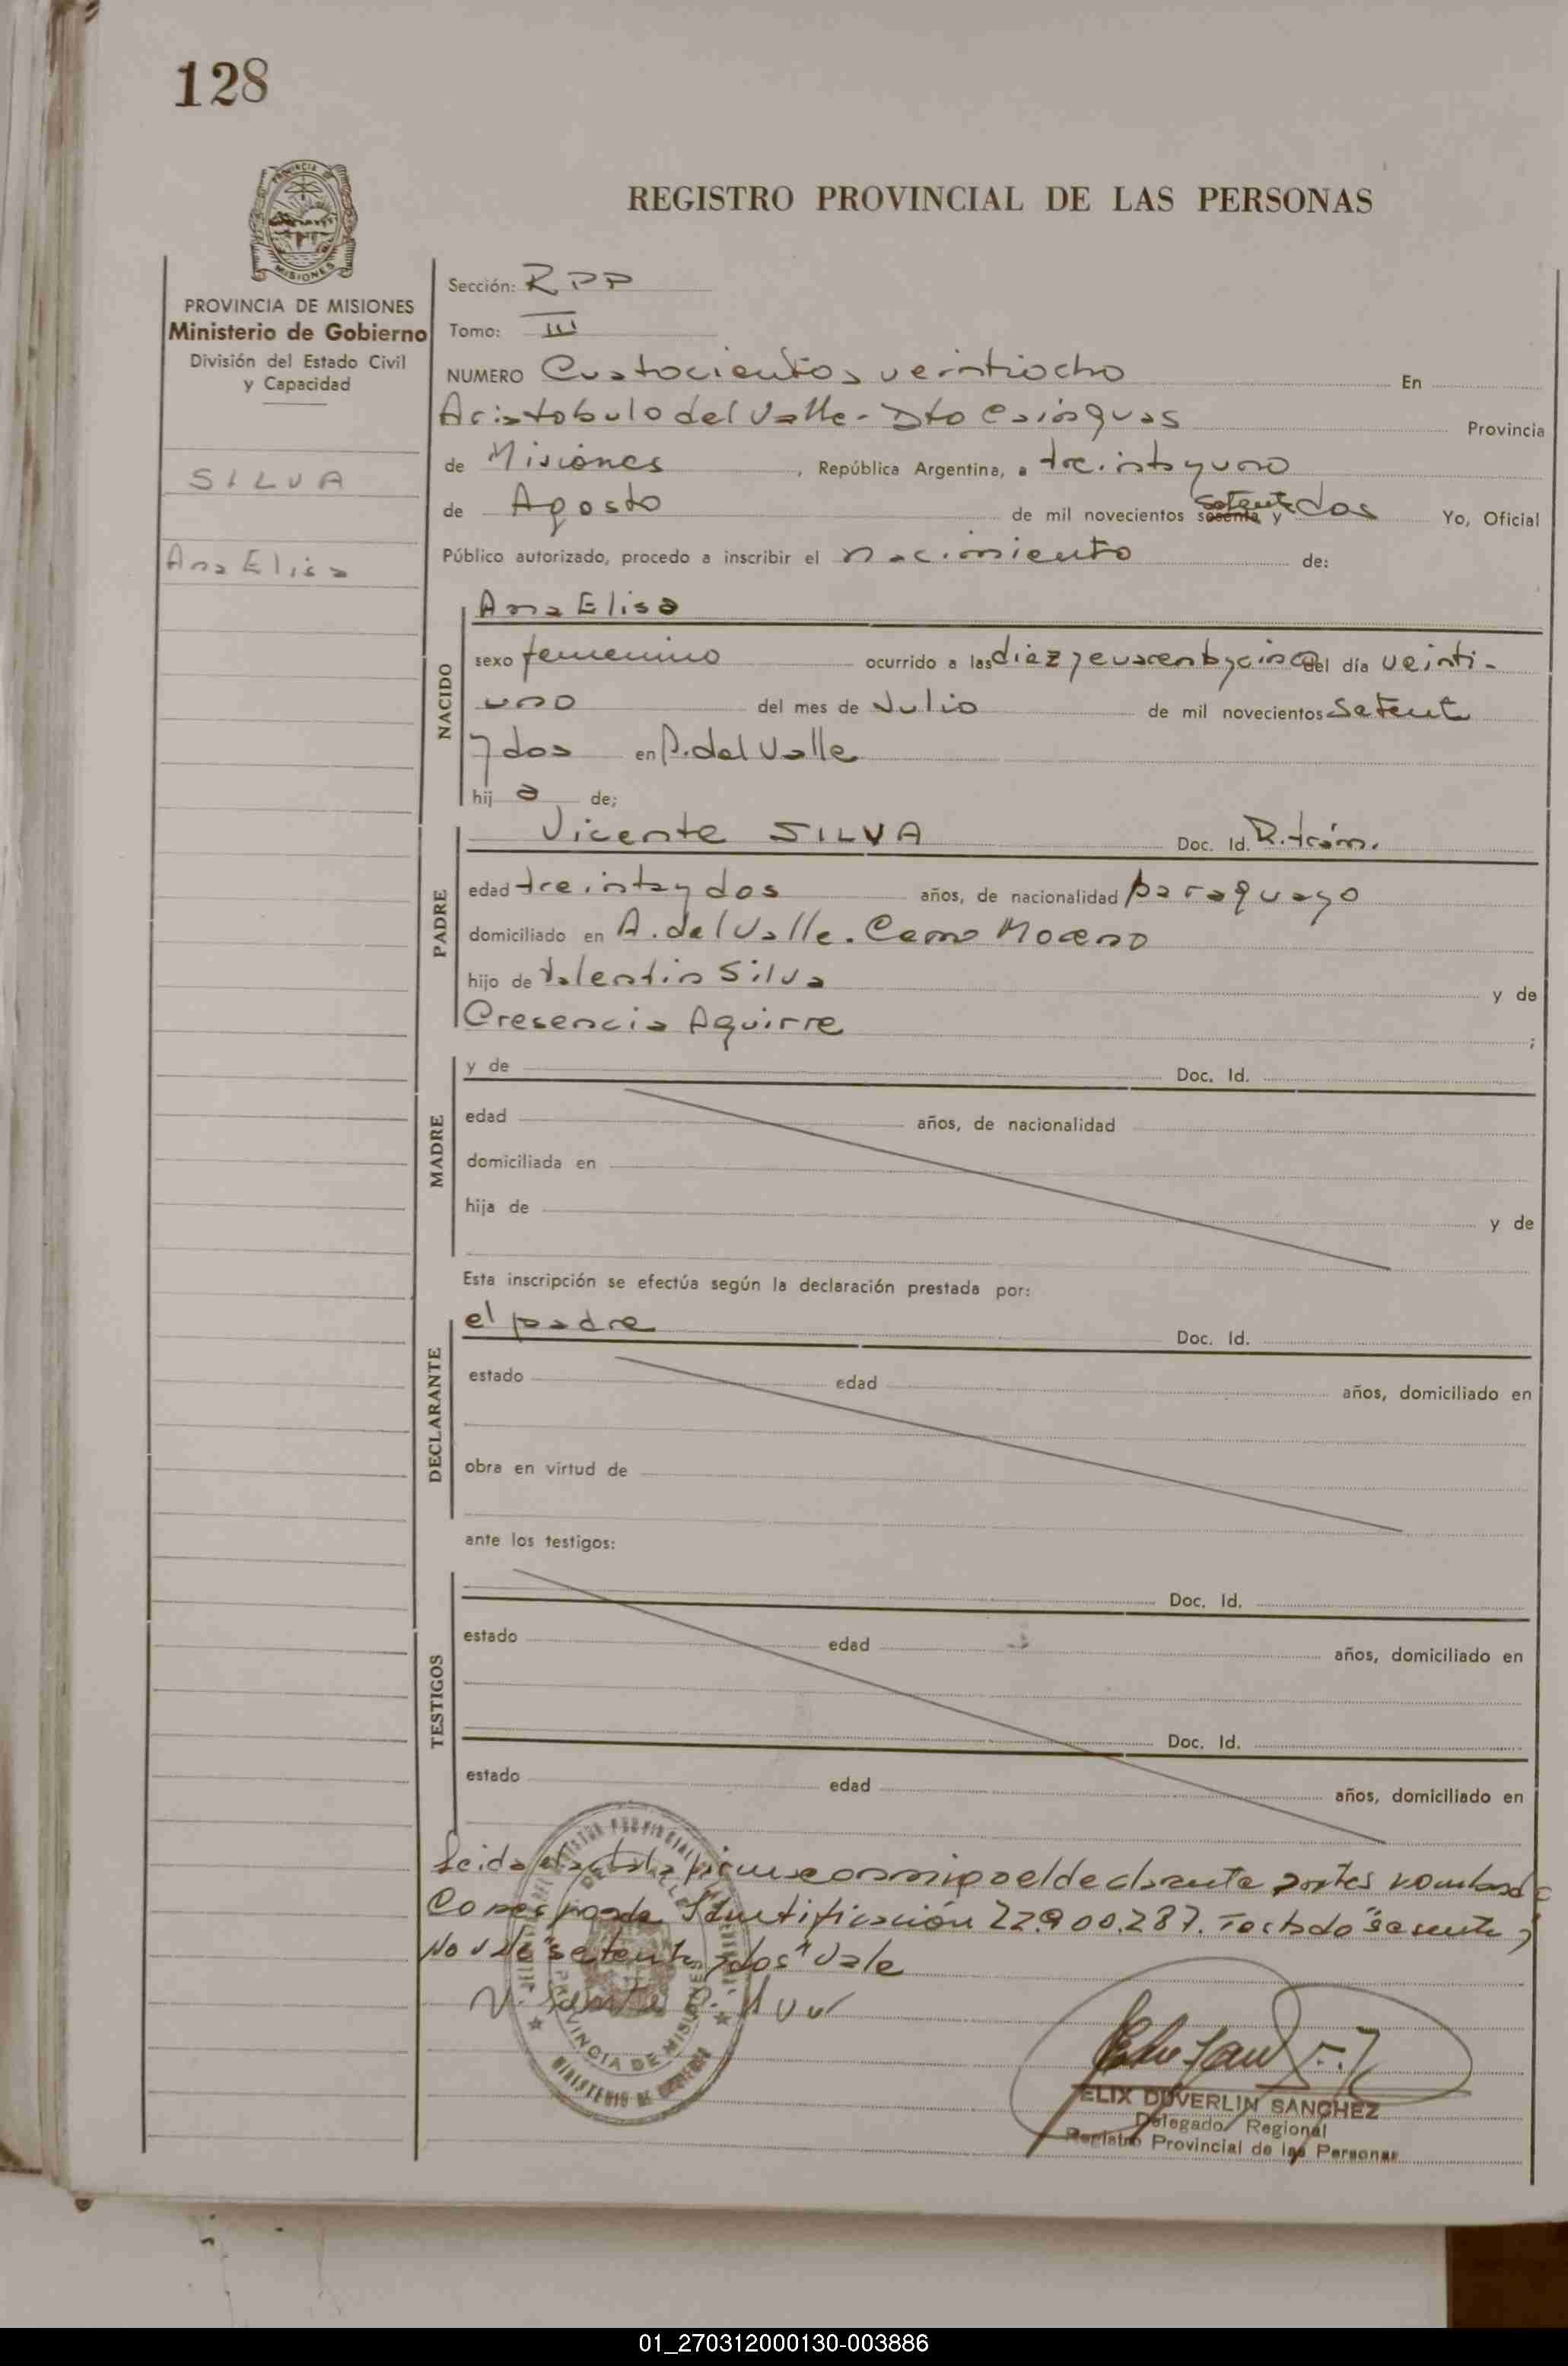 128
PROVINCIA DE MISIONES
Ministerio de Gobierno
División del Estado Civil
y Capacidad
SILVA
Ana Elisa
REGISTRO PROVINCIAL DE LAS PERSONAS
Sección: RPP
Tomo: III
NUMERO Cuatocientos veintiocho En
Aristobulo del Valle - Dto Cainguas Provincia
de Misiones, República Argentina, a treinta y uno
de Agosto de mil novecientos sesenta y setenta dos Yo, Oficial
Público autorizado, procedo a inscribir el nacimiento de:
NACIDO
Ana Elisa
sexo femenino ocurrido a las diez y cuarenta y cinco del día veinti-
uno del mes de Julio de mil novecientos setent
y dos en A. del Valle
hij a de;
PADRE
Vicente SILVA Doc. Id. R. trám.
edad treinta y dos años, de nacionalidad paraguayo
domiciliado en A. del Valle. Cerro Moreno
hijo de Valentin Silva y de
Cresencia Aguirre ;
MADRE
y de Doc. Id.
edad años, de nacionalidad
domiciliada en
hija de y de
Esta inscripción se efectúa según la declaración prestada por:
DECLARANTE
el padre Doc. Id.
estado edad años, domiciliado en
obra en virtud de
ante los testigos:
TESTIGOS
Doc. Id.
estado edad años, domiciliado en
Doc. Id.
estado edad años, domiciliado en
Leida el acta la firma conmigo el declarante antes nombrado
Corresponde Identificación 22.900.287. Testado "sesenta y
No vale "setenta y dos" Vale
PROVINCIA DE MISIONES
MINISTERIO DE GOBIERNO
ELIX DUVERLIN SANCHEZ
Delegado Regional
Registro Provincial de las Personas
01_270312000130-003886